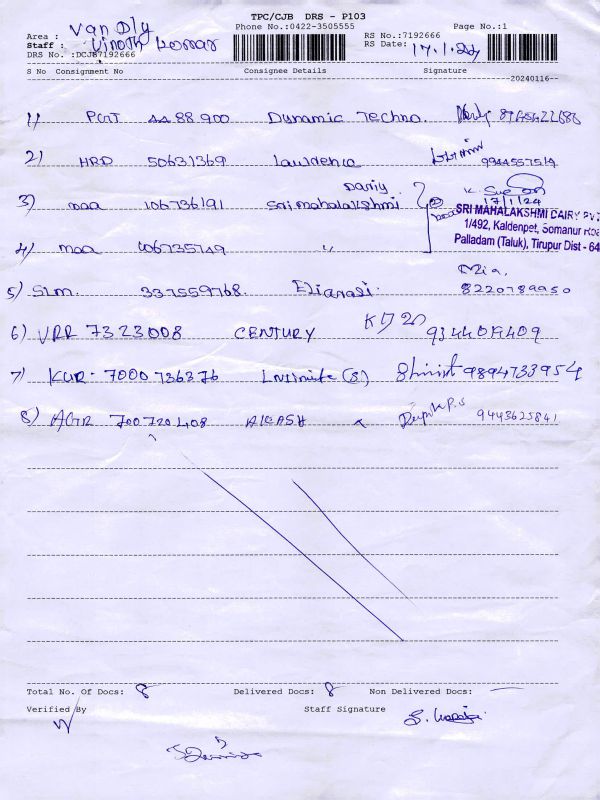 TPC/CJB DRS - P103
Phone No.:0422-3505555 Page No.:1
Area : Van Dly
Staff : Vinoth Kumar
RS No.:7192666
DRS No. :DCJB7192666
RS Date: 17.1.24
S No Consignment No Consignee Details Signature
20240116
1) PGT 4488900 Dynamic Techno.
2) HRD 50631369 Lawdenco 9944557519
3) maa 106736191 Sri mahalakshmi Dariy
17/1/24
SRI MAHALAKSHMI DAIRY PVT
1/492, Kaldenpet, Somanur Roa
Palladam (Taluk), Tirupur Dist - 64
4) maa 106735749 "
5) SLM. 337559768. 8220789950
6) VRR 7323008 CENTURY
7) KUR- 7000736376 9894733954
8) AGR 700720408 AKASH 9443625841
Total No. Of Docs: 8 Delivered Docs: 8 Non Delivered Docs: —
Verified By Staff Signature